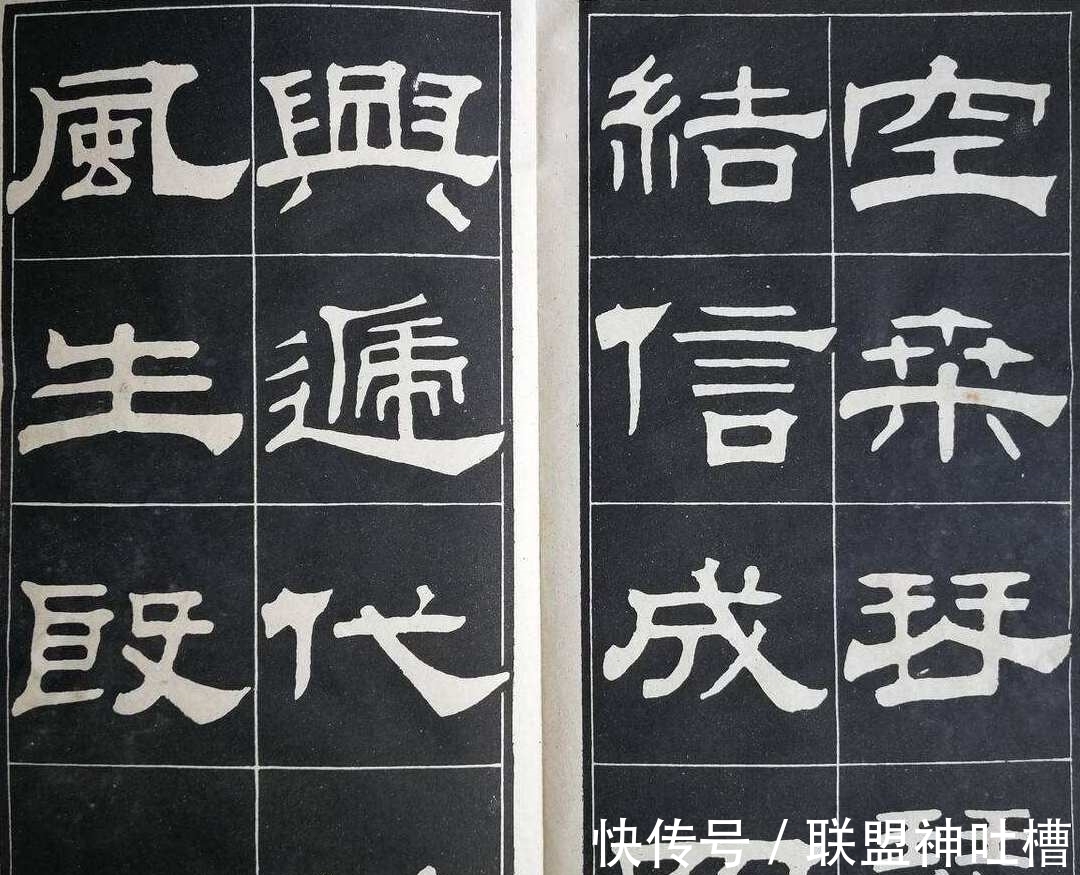 空桒琴
結信成
興遞代
風生殷
快传号 / 联盟神吐槽